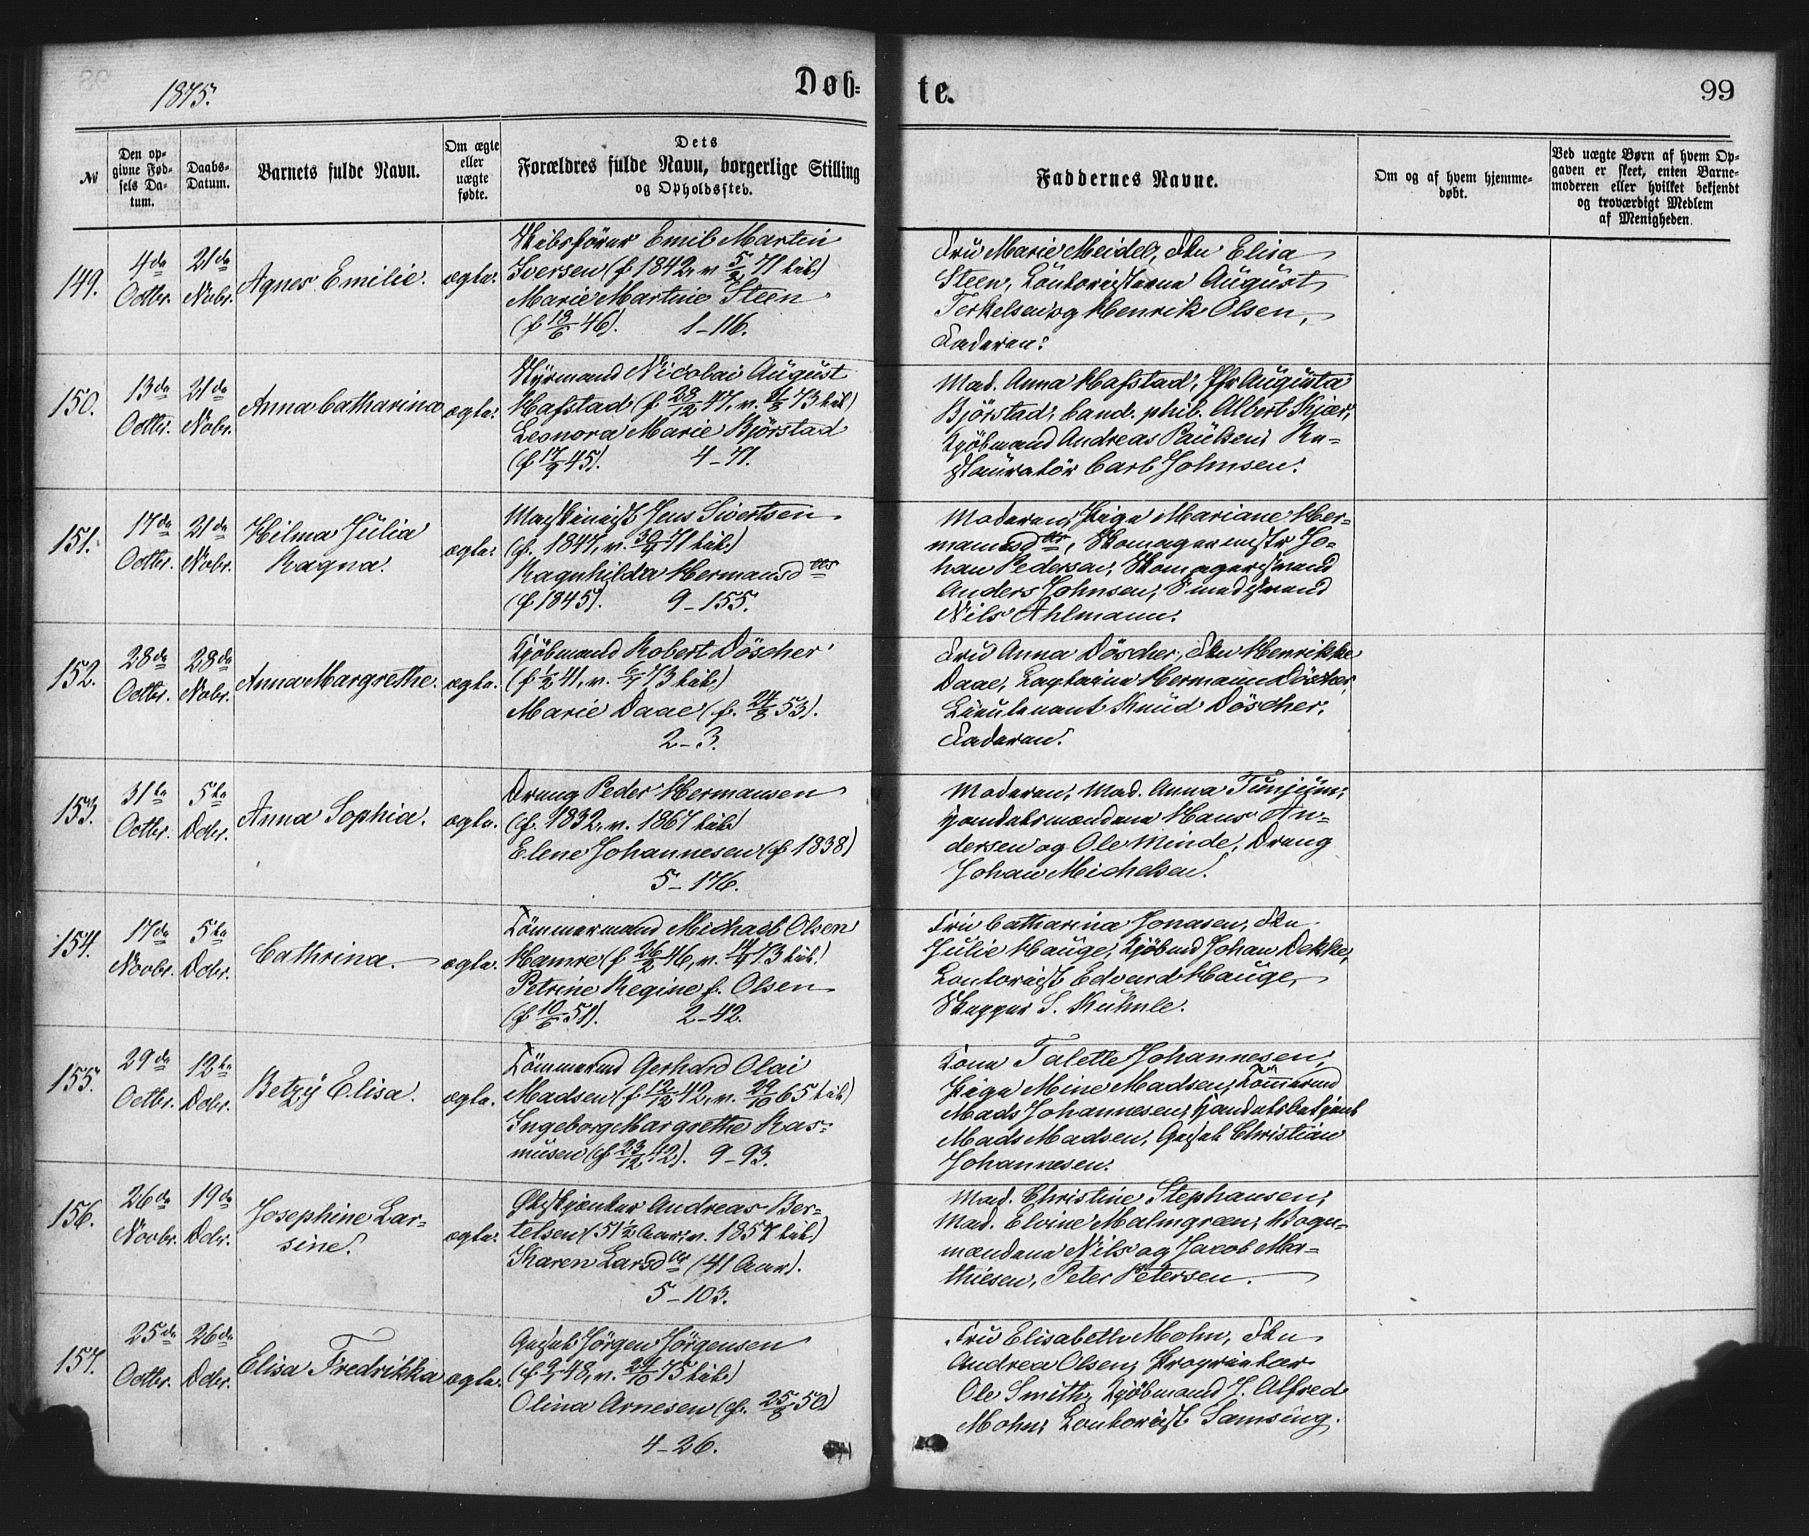 1875.
Døb-
te.
99
№
Den op-
givne Fød-
sels Da-
tum.
Daabs-
Datum.
Barnets fulde Navn.
Om ægte
eller
uægte
fødte.
Dets
Forældres fulde Navn, borgerlige Stilling
og Opholdssted.
Faddernes Navne.
Om og af hvem hjemme-
døbt.
Ved uægte Børn af hvem Op-
gaven er skeet, enten Barne-
moderen eller hvilket bekjendt
og troværdigt Medlem
af Menigheden.
149.
4de
Octbr.
21de
Novbr.
Agnes Emilie.
ægte.
Skibsfører Emil Martin
Iversen (f 1842, v. 5/2 71 her)
Marie Martine Steen
(f 18/6 46). 1-116.
Fru Marie Meidel, Frkn Elisa
Steen, Contoristerne August
Terkelsen og Henrik Olsen,
Faderen.
150.
13de
Octbr.
21de
Novbr.
Anna Catharina
ægte.
Styrmand Nicolai August
Hafstad (f. 28/12 47, v. 73 her)
Leonora Marie Bjørstad
(f 17/9 45). 4-71.
Mad. Anna Hafstad, Jfr Augusta
Bjørstad, Cand. phil. Albert Kjær,
Kjøbmand Andreas Paulsen, Re-
stauratør Carl Johnsen.
151.
17de
Octbr.
21de
Novbr.
Hilma Julia
Ragna.
ægte.
Maskinist Jens Sivertsen
(f. 1847, v. 30/4 71 her)
Ragnhilda Hermansdtr
(f 1845). 9-155.
Moderen, Pige Mariane Her-
mansdtr, Skomagermstr Jo-
han Pedersen, Skomagersvend
Anders Johnsen, Smedsvend
Nils Ahlmann.
152.
28de
Octbr.
28de
Novbr.
Anna Margrethe.
ægte.
Kjøbmand Robert Döscher
(f 1/2 41, v. 73 her)
Marie Daae (f. 24/8 53).
2-3.
Fru Anna Döscher, Frkn Henrikke
Daae, Herman Döscher,
Lieutenant Knud Döscher,
Faderen.
153.
31te
Octbr.
5te
Dcbr.
Anna Sophia.
ægte.
Dreng Peder Hermansen
(f. 1832, v. 1867 her)
Elene Johannesen (f 1838)
5-176.
Moderen, Mad. Anna
Hans An-
dersen og Ole Minde, Dreng
Johan Michelsen.
154.
17de
Novbr.
5te
Dcbr.
Cathrina.
ægte.
Tömmermand Michael Olsen
Hamre (f 26/2 46, v. 73 her)
Petrine Regine f. Olsen
(f 10/6 51). 2-42.
Fru Catharina Jonasen, Frkn
Julie Hauge, Kjøbmd Johan Dekke,
Contorist Edvard Hauge,
Skipper S. Kuhnle.
155.
29de
Octbr.
12te
Dcbr.
Betzy Elisa.
ægte.
Tömmermd Gerhard Olai
Madsen (f 12/12 42, v. 29/10 65 her)
Ingeborg Margrethe Ras-
musen (f 23/12 42). 9-93.
Kone Talette Johannesen,
Pige Mine Madsen, Tömmermd
Mads Johannesen, Handelsbetjent
Mads Madsen, Gesel Christian
Johannesen.
156.
26de
Novbr.
19de
Dcbr.
Josephine Lar-
sine.
ægte.
Ølskjenker Andreas Ber-
telsen (51 1/2 Aar, v. 1857 her)
Karen Larsdtr (41 Aar).
5-103.
Mad. Christine Stephansen,
Mad. Elvine Malmgren, Vogn-
mændene Nils og Jacob Ma-
thiesen, Peter Petersen.
157.
25de
Octbr.
26de
Dcbr.
Elisa Fredrikka
ægte.
Gesel Jørgen Jørgensen
(f 48, v. 24/10 75 her)
Olina Arnesen (f. 25/8 50)
4-26.
Fru Elisabeth Mohn, Frkn
Andrea Olsen, Proprietær
Ole Smith, Kjøbmand J. Alfred
Mohn, Contorist Samsing.